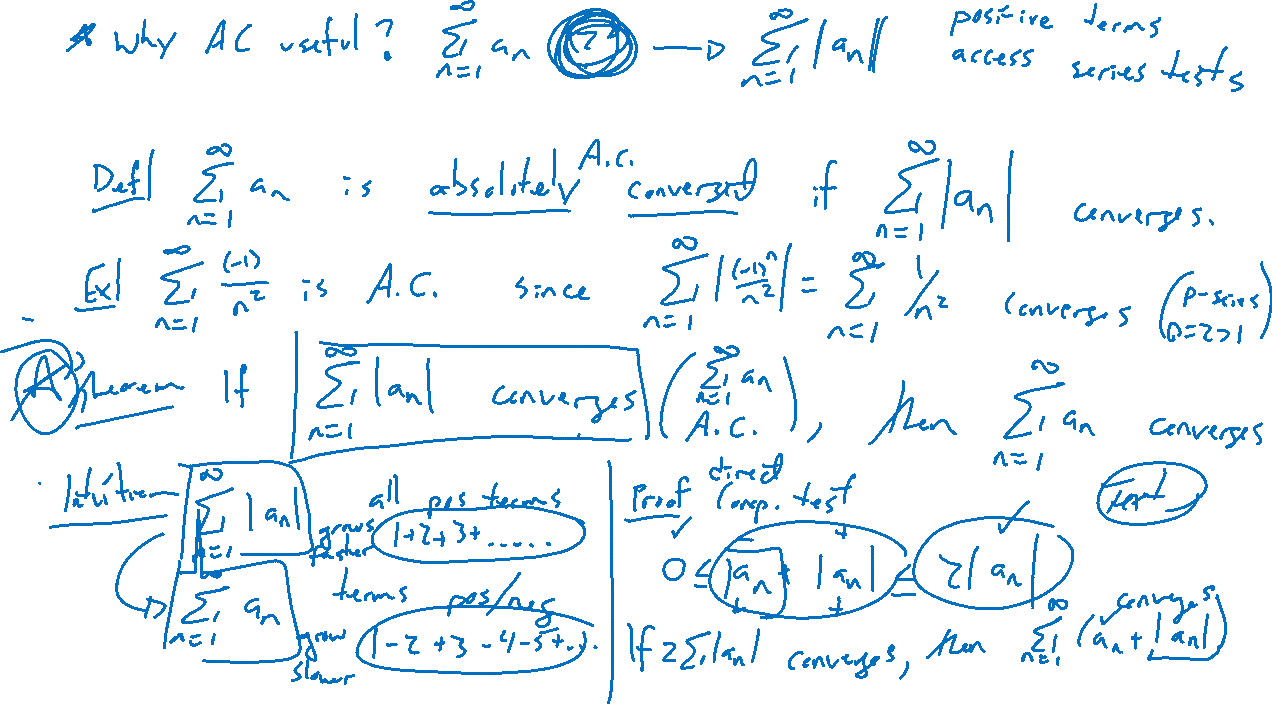 * Why AC useful? ∞∑n=1 an ? → ∞∑n=1 |an| positive terms
access series tests
Def| ∞∑n=1 an is absolutely convergent A.C. if ∞∑n=1 |an| converges.
Ex| ∞∑n=1 (-1)/n² is A.C. since ∞∑n=1 |(-1)ⁿ/n²| = ∞∑n=1 1/n² converges (p-series
p=2>1)
Theorem If ∞∑n=1 |an| converges (∞∑n=1 an A.C.), then ∞∑n=1 an converges
Intuition ∞∑n=1 |an| all pos terms
grows faster 1+2+3+.....
∞∑n=1 an terms pos/neg
grow slower 1-2+3-4-5+...
Proof direct Comp. test
0 ≤ |an + |an| ≤ 2|an|
If 2∑|an| converges, then ∞∑n=1 (an + |an|) converges